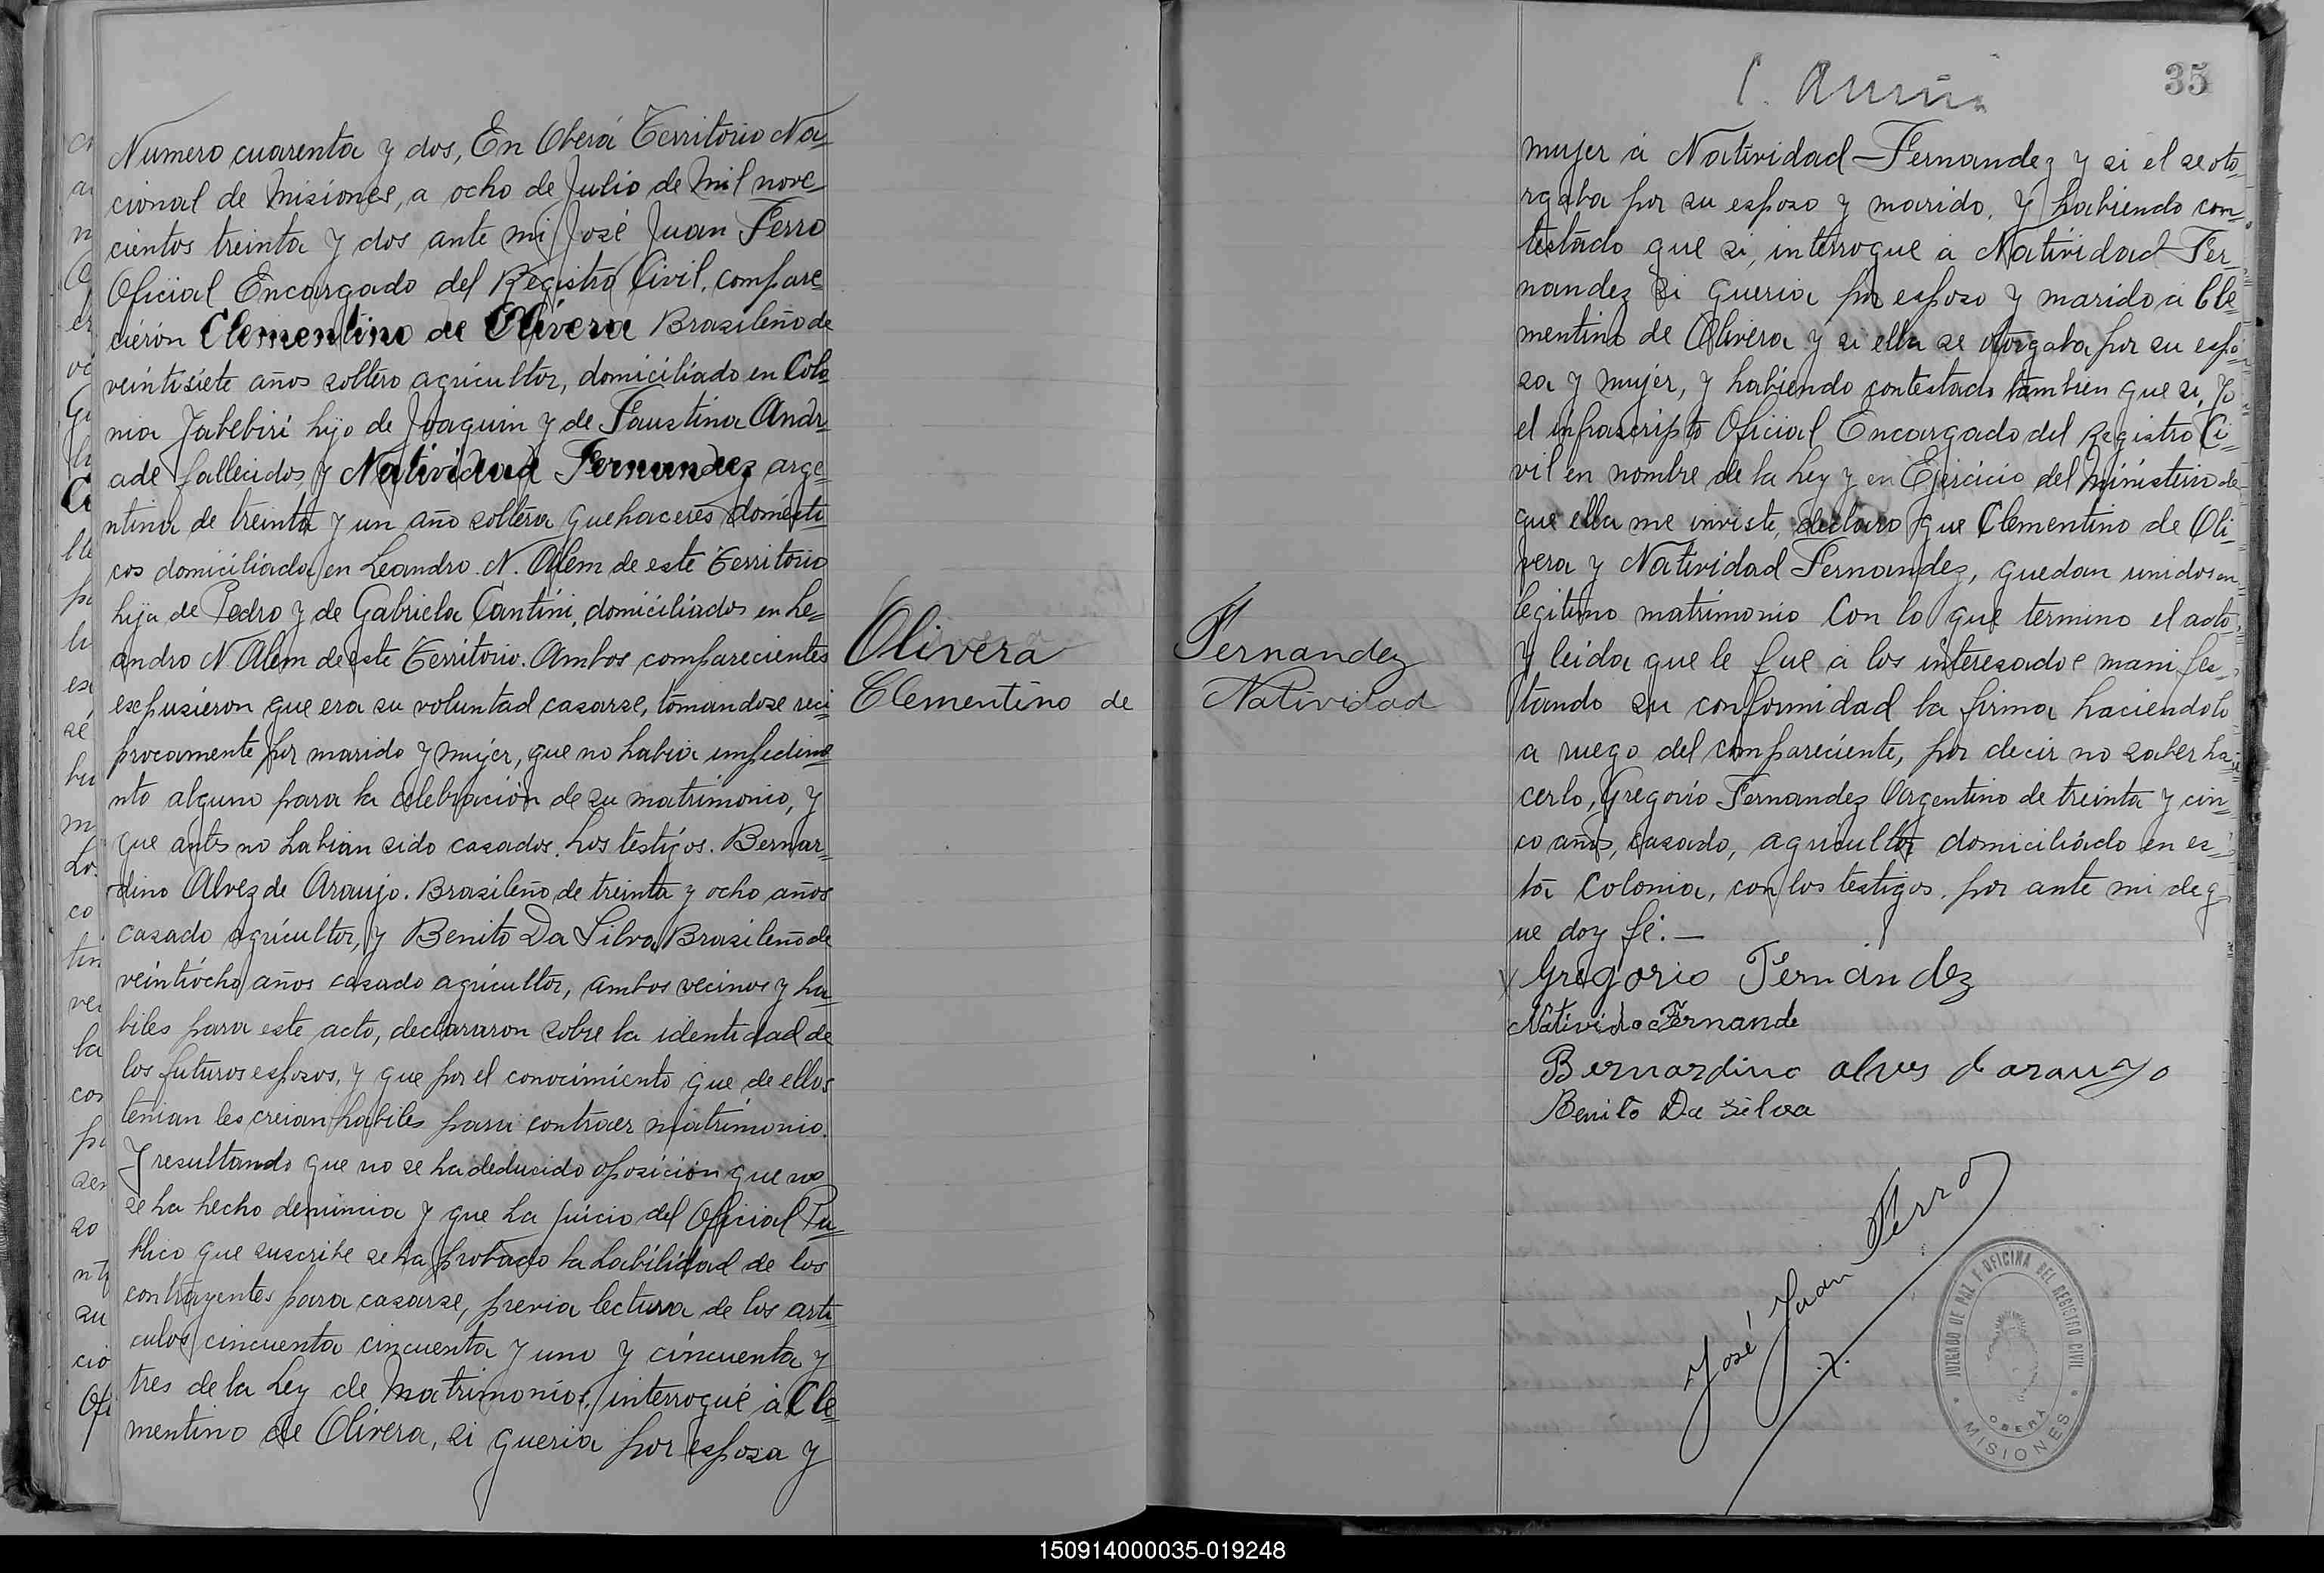 Numero cuarenta y dos, En Oberá Territorio Na
cional de Misiones, a ocho de Julio de Mil nove
cientos treinta y dos ante mi José Juan Ferro
Oficial Encargado del Registro Civil, compare
cierón Clementino de Olivera Brasileño de
veintisiete años soltero agricultor, domiciliado en Colo
nia Jabebiri hijo de Joaquin y de Faustina Andr
ade fallecidos, y Natividad Fernandez arge
ntina de treinta y un año soltera quehaceres domésti
cos domiciliada en Leandro N. Alem de este Territorio
hija de Pedro y de Gabriela Cantini, domiciliados en Le
andro N. Alem de este Territorio. Ambos comparecientes
expusieron que era su voluntad casarse, tomandose reci
procamente por marido y mujer, que no habia impedime
nto alguno para la celebración de su matrimonio, y
que antes no habian sido casados. Los testigos. Bernar
dino Alvez de Araujo. Brasileño de treinta y ocho años
casado agricultor, y Benito Da Silva, Brasileño de
veintiocho años casado agricultor, ambos vecinos y ha
biles para este acto, declararon sobre la identidad de
los futuros esposos, y que por el conocimiento que de ellos
tenian les creian habiles para contraer matrimonio.
Y resultando que no se ha deducido oposición que no
se ha hecho denuncia y que ha juicio del Oficial Pu
blico que suscribe se ha probado la habilidad de los
contrayentes para casarse, previa lectura de los arti
culos cincuenta cincuenta y uno y cincuenta y
tres de la Ley de Matrimonios, interrogué à Cle
mentino de Olivera, si queria por esposa y
Olivera
Clementino de
Fernandez
Natividad
35
mujer à Natividad Fernandez y si el se oto
rgaba por su esposo y marido, y habiendo con
testado que si, interrogue à Natividad Fer
nandez si queria por esposo y marido à Cle
mentino de Olivera y si ella se otorgaba por su espo
sa y mujer, y habiendo contestado tambien que si, Yo
el infrascripto Oficial Encargado del Registro Ci
vil en nombre de la Ley y en Ejercicio del Ministerio de
que ella me inviste, declaro que Clementino de Oli
vera y Natividad Fernandez, quedan unidos en
legitimo matrimonio Con lo que termino el acto
Y leida que le fue à los interesados manifes
tando su conformidad la firma haciendolo
a ruego del compareciente, por decir no saber ha
cerlo, Gregorio Fernandez Argentino de treinta y cin
co años, casado, agricultor domiciliádo en es
ta Colonia, con los testigos, por ante mi de q
ue doy fé.—
Gregorio Fernández
Nativida Fernande
Bernardino alves d araujo
Benito Da Silva
José Juan Ferro
JUZGADO DE PAZ Y OFICINA DEL REGISTRO CIVIL
OBERÁ
MISIONES
150914000035-019248